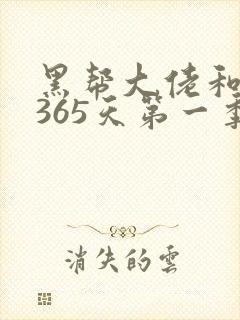 黑帮大佬和
365天第一季
消失的雲